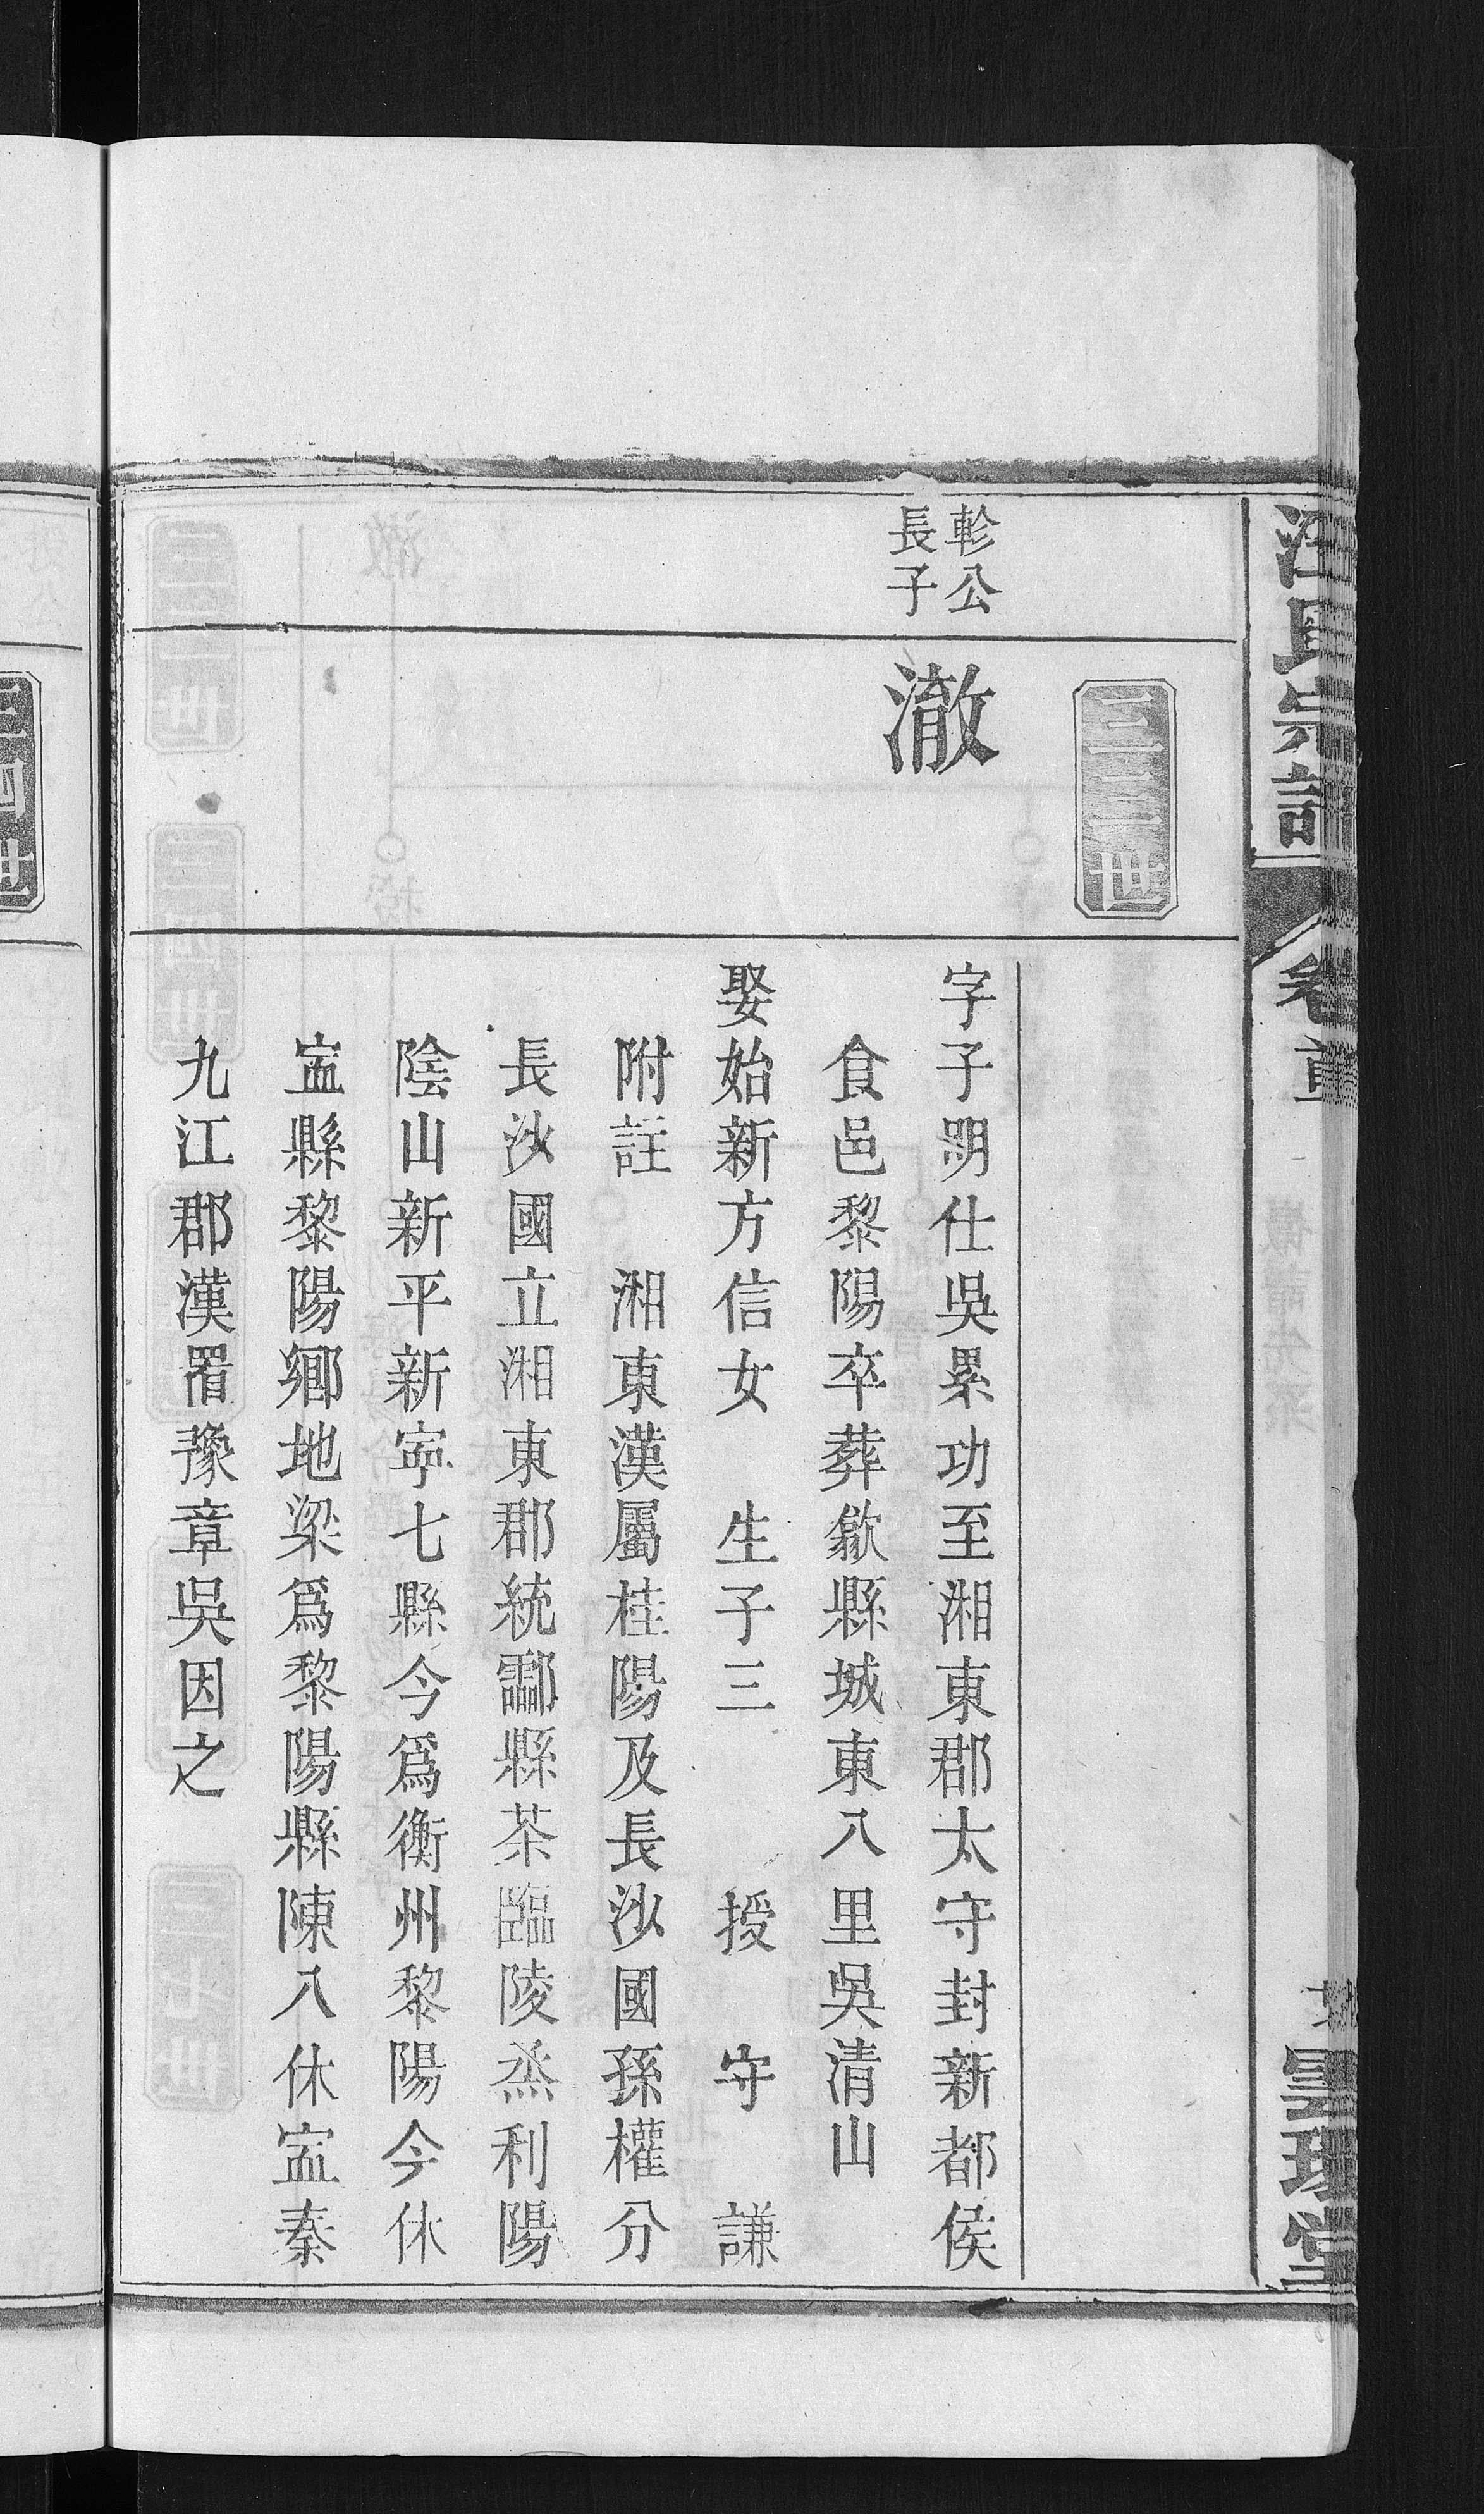 汪氏宗譜
卷首
三三世
軫公
長子
澈
字子明仕吳累功至湘東郡太守封新都侯
食邑黎陽卒葬歙縣城東八里吳清山
娶始新方信女 生子三 授 守 謙
附註 湘東漢屬桂陽及長沙國孫權分
長沙國立湘東郡統酃縣茶臨陵烝利陽
陰山新平新寧七縣今爲衡州黎陽今休
寍縣黎陽鄉地梁爲黎陽縣陳入休寍秦
九江郡漢置豫章吳因之
三四世